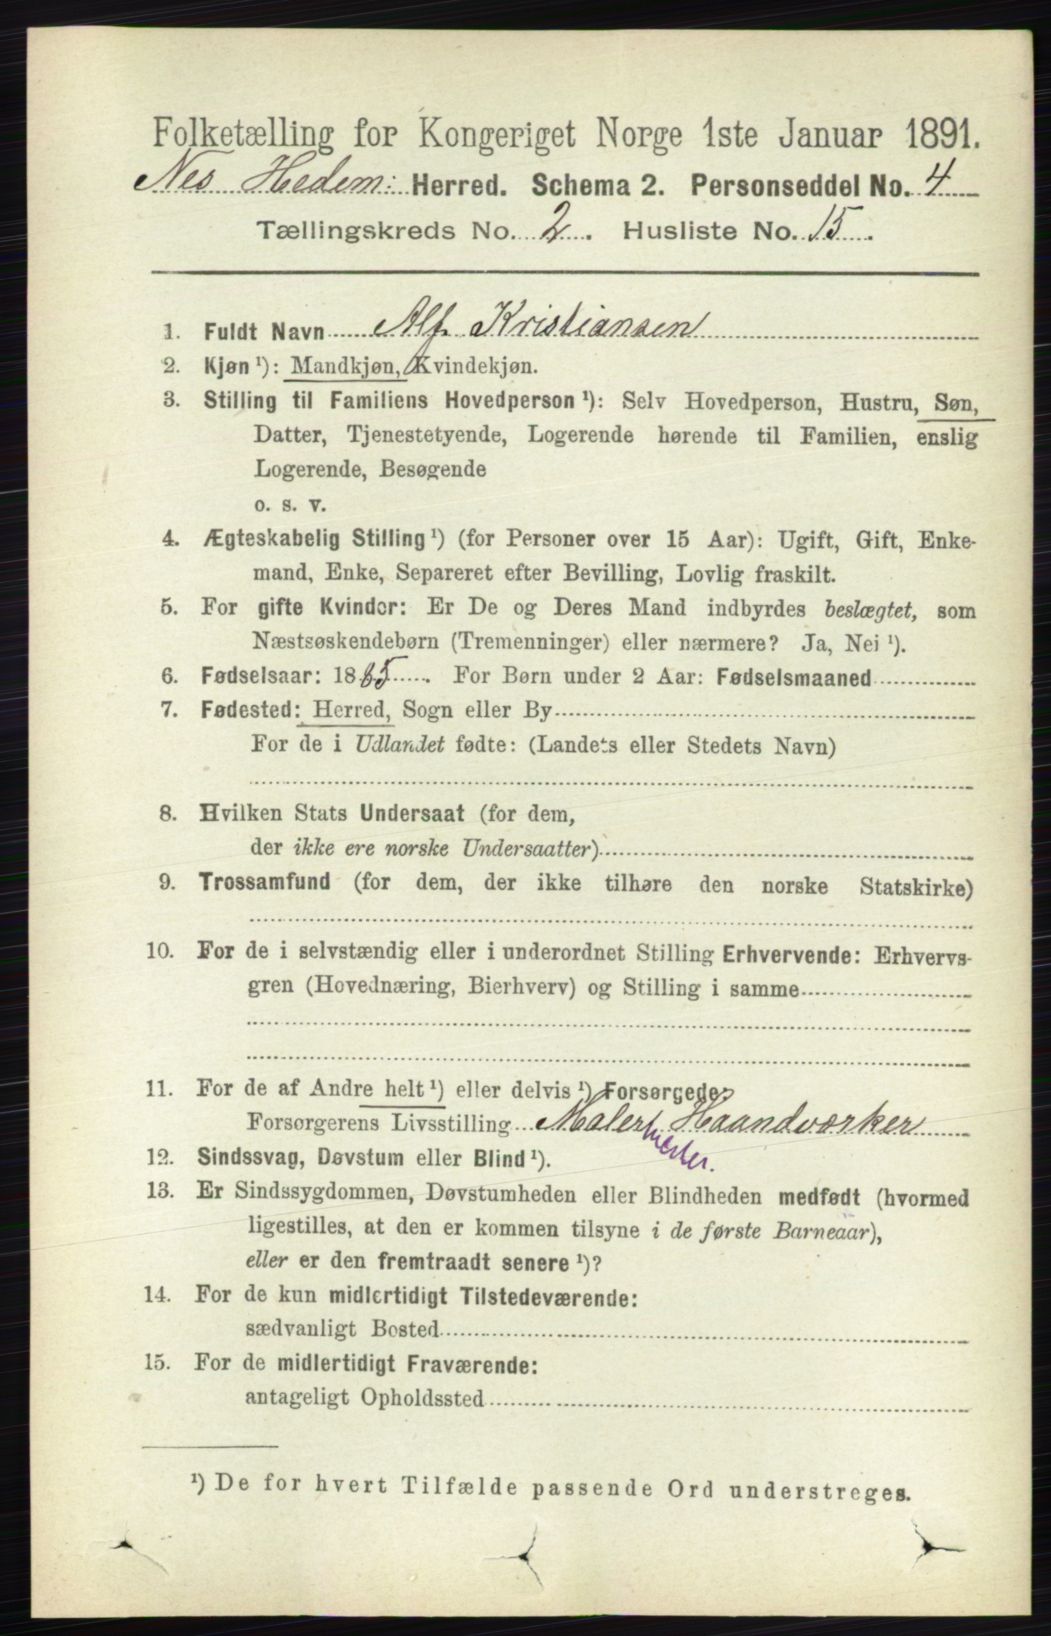 Folketælling for Kongeriget Norge 1ste Januar 1891.
Nes Hedem: Herred. Schema 2. Personseddel No. 4
Tællingskreds No. 2. Husliste No. 15.
1. Fuldt Navn Alf Kristiansen
2. Kjøn ¹): Mandkjøn, Kvindekjøn.
3. Stilling til Familiens Hovedperson ¹): Selv Hovedperson, Hustru, Søn,
Datter, Tjenestetyende, Logerende hørende til Familien, enslig
Logerende, Besøgende
o. s. v.
4. Ægteskabelig Stilling ¹) (for Personer over 15 Aar): Ugift, Gift, Enke-
mand, Enke, Separeret efter Bevilling, Lovlig fraskilt.
5. For gifte Kvinder: Er De og Deres Mand indbyrdes beslægtet, som
Næstsøskendebørn (Tremenninger) eller nærmere? Ja, Nei ¹).
6. Fødselsaar: 1885. For Børn under 2 Aar: Fødselsmaaned
7. Fødested: Herred, Sogn eller By
For de i Udlandet fødte: (Landets eller Stedets Navn)
8. Hvilken Stats Undersaat (for dem,
der ikke ere norske Undersaatter)
9. Trossamfund (for dem, der ikke tilhøre den norske Statskirke)
10. For de i selvstændig eller i underordnet Stilling Erhvervende: Erhvervs-
gren (Hovednæring, Bierhverv) og Stilling i samme
11. For de af Andre helt ¹) eller delvis ¹) Forsørgede:
Forsørgerens Livsstilling Maler Haandværker
12. Sindssvag, Døvstum eller Blind ¹).
13. Er Sindssygdommen, Døvstumheden eller Blindheden medfødt (hvormed
ligestilles, at den er kommen tilsyne i de første Barneaar),
eller er den fremtraadt senere ¹)?
14. For de kun midlertidigt Tilstedeværende:
sædvanligt Bosted
15. For de midlertidigt Fraværende:
antageligt Opholdssted
¹) De for hvert Tilfælde passende Ord understreges.